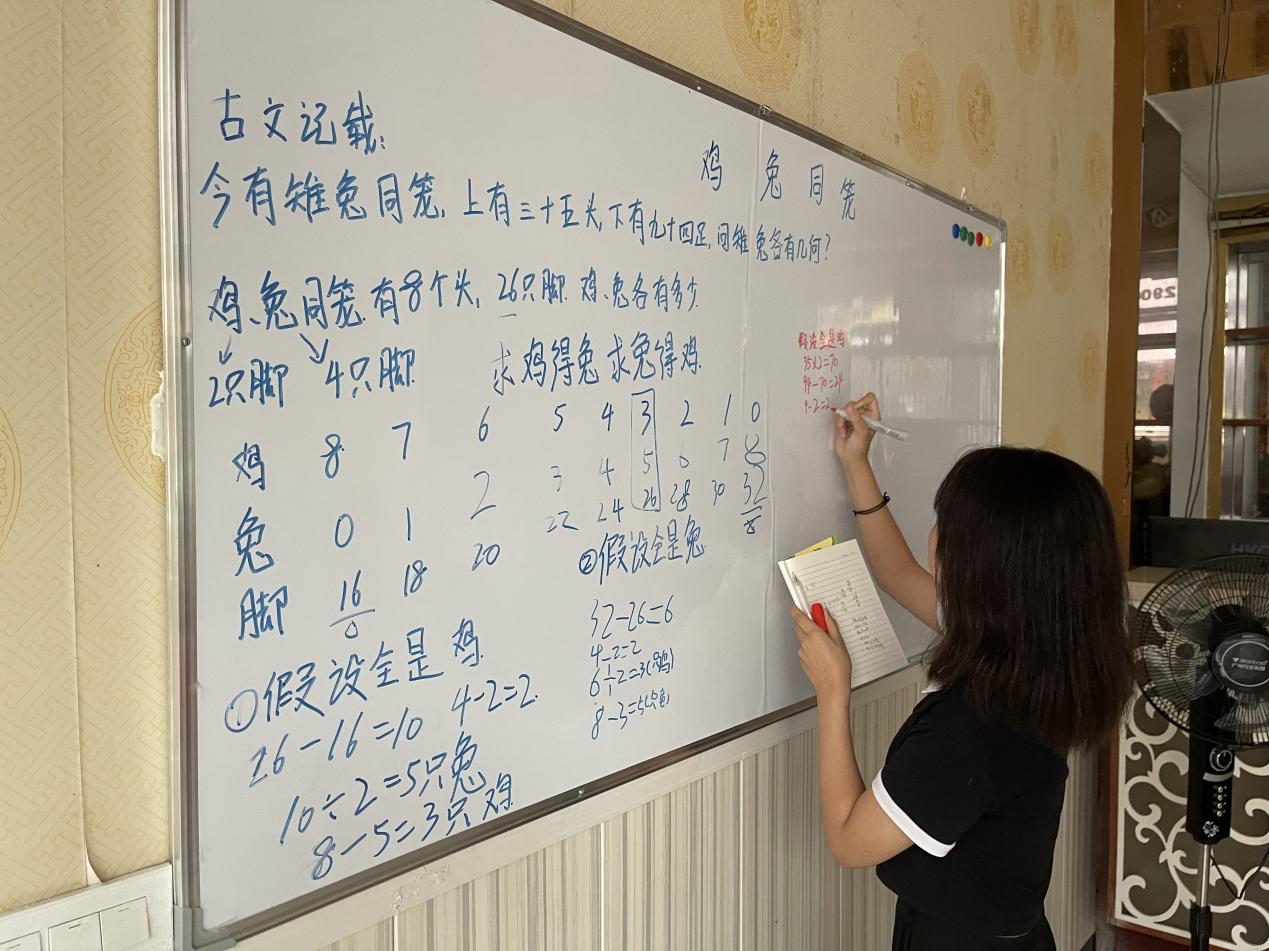 鸡兔同笼
古文记载:
今有雉兔同笼,上有三十五头,下有九十四足,问雉兔各有几何?
鸡、兔同笼,有8个头,26只脚.鸡、兔各有多少.
2只脚 4只脚 求鸡得兔 求兔得鸡.
鸡 8 7 6 5 4 3 2 1 0
兔 0 1 2 3 4 5 6 7 8
脚 16 18 20 22 24 26 28 30 32
①假设全是鸡
26-16=10 4-2=2.
10÷2=5只兔
8-5=3只鸡
②假设全是兔
32-26=6
4-2=2
6÷2=3(只鸡)
8-3=5(只兔)
假设全是鸡
35×2=70
94-70=24
4-2=2